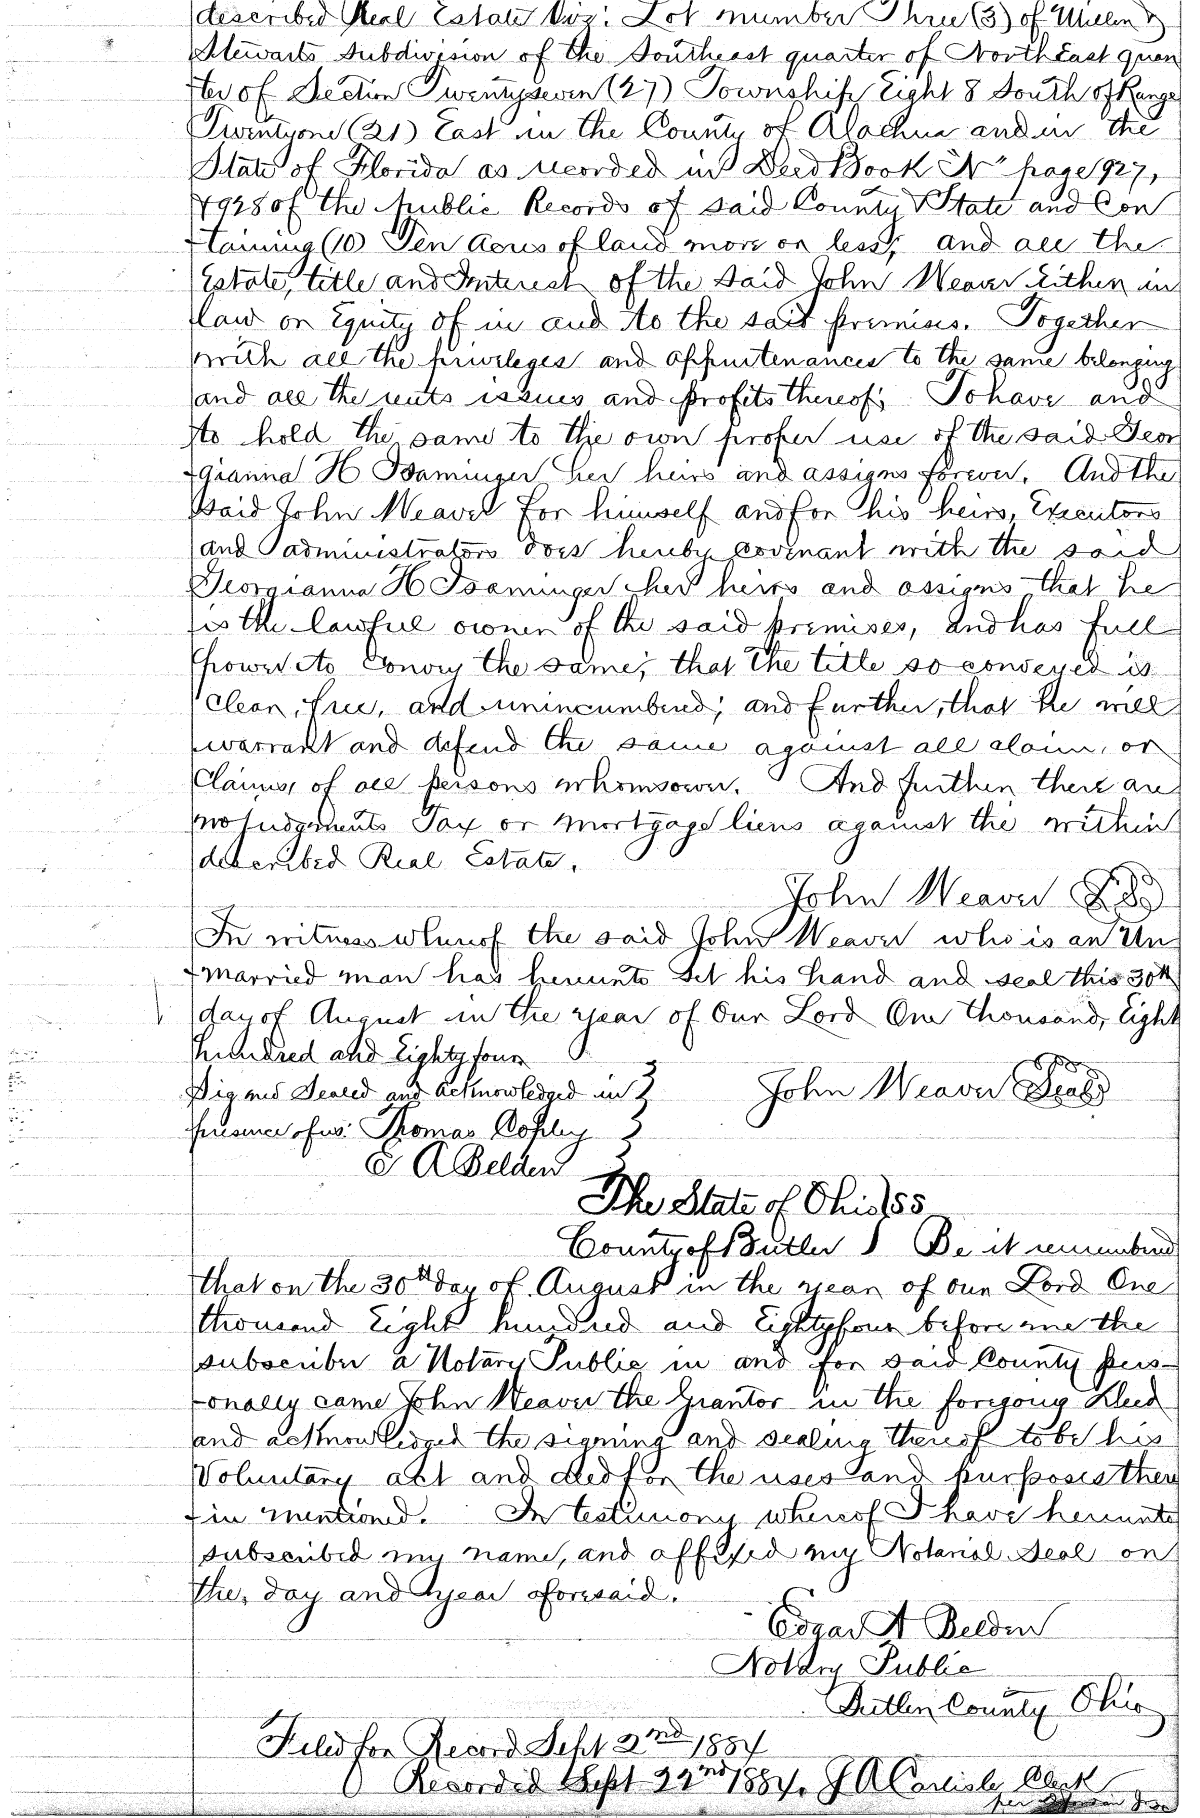 described Real Estate Viz: Lot number Three (3) of Millen &
Stewarts Subdivision of the Southeast quarter of North East quar
-ter of Section Twentyseven (27) Township Eight 8 South of Range
Twentyone (21) East in the County of Alachua and in the
State of Florida as recorded in Deed Book "N" page 927,
& 928 of the public Records of said County & State and Con
-taining (10) Ten Acres of land more or less; and all the
Estate, title and Interest of the said John Weaver Either in
law or Equity of in and to the said premises. Together
with all the privileges and appurtenances to the same belonging
and all the rents issues and profits thereof; To have and
to hold the same to the own proper use of the said Geor
-gianna H Isaminger her heirs and assigns forever. And the
said John Weaver for himself and for his heirs, Executors
and administrators does hereby covenant with the said
Georgianna H Isaminger her heirs and assigns that he
is the lawful owner of the said premises, and has full
power to convey the same; that the title so conveyed is
Clear, free, and unincumbered; and further, that he will
warrant and defend the same against all claim, or
Claims, of all persons whomsoever. And further there are
no Judgements Tax or Mortgage liens against the within
described Real Estate.
John Weaver
In witness whereof the said John Weaver who is an Un
-married man has hereunto set his hand and seal this 30th
day of August in the year of Our Lord One thousand, Eight
hundred and Eightyfour
Signed Sealed and acknowledged in } John Weaver Seal
presence of us: Thomas Copley }
E A Belden }
The State of Ohio } SS
County of Butler } Be it remembered
that on the 30th day of August in the year of our Lord One
thousand Eight hundred and Eightyfour before me the
subscriber a Notary Public in and for said County pers-
-onally came John Weaver the Grantor in the foregoing Deed
and acknowledged the signing and sealing thereof to be his
Voluntary act and deed for the uses and purposes there
-in mentioned. In testimony whereof I have hereunto
subscribed my name, and affixed my Notarial Seal on
the, day and year aforesaid.
Edgar A Belden
Notary Public
Butler County Ohio
Filed for Record Sept 2nd 1884
Recorded Sept 22nd 1884. J A Carlisle Clerk
per